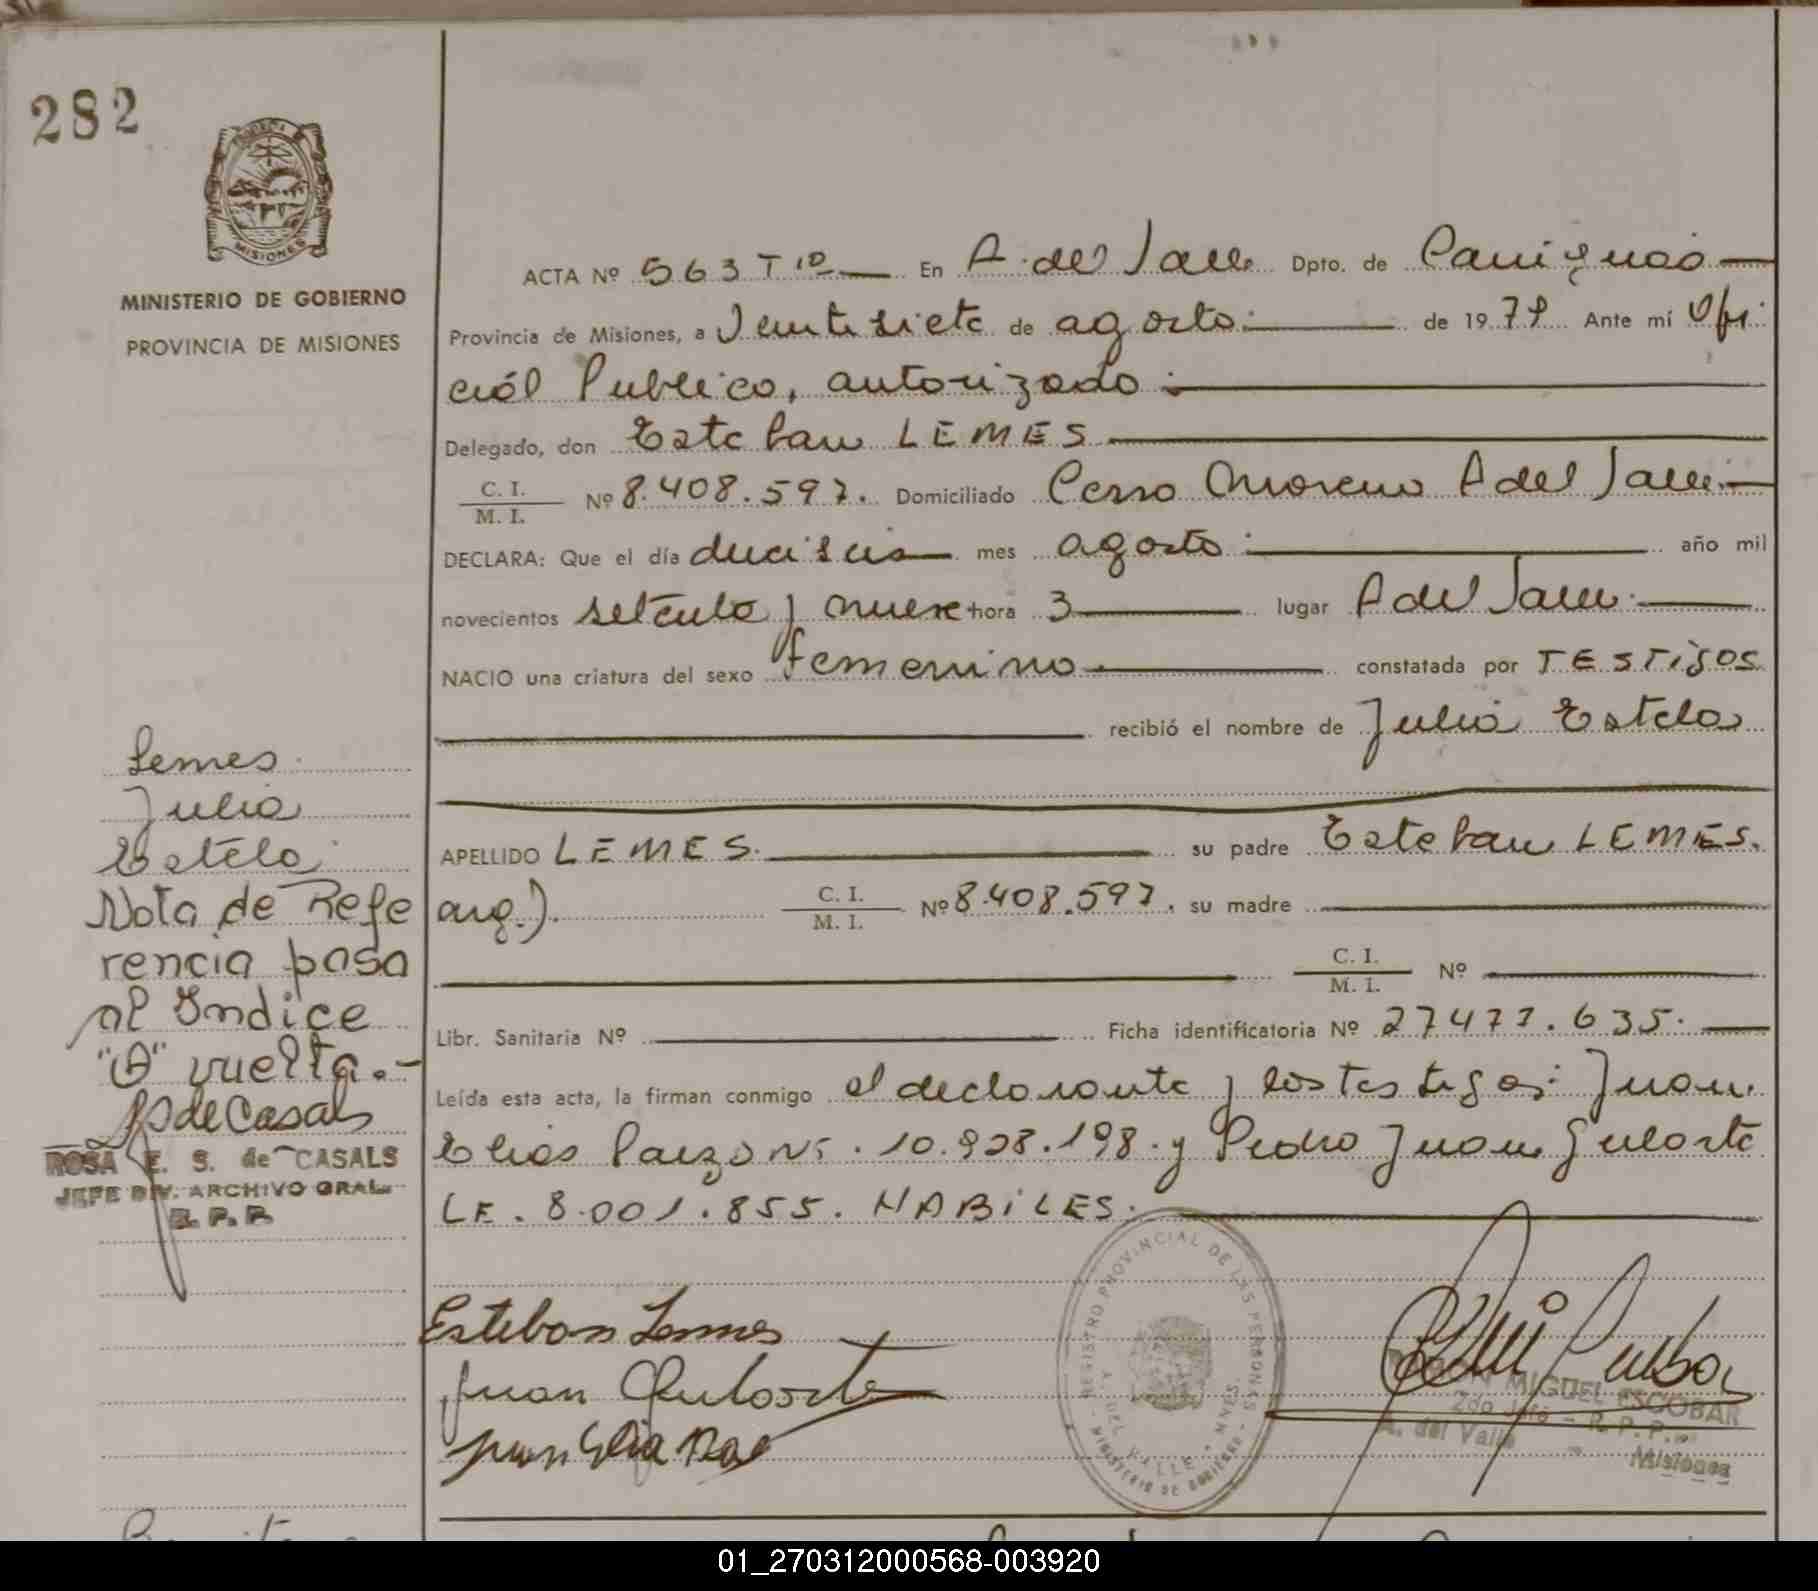 282
MISIONES
MINISTERIO DE GOBIERNO
PROVINCIA DE MISIONES
ACTA Nº 563 Tº En A. del Valle Dpto. de Cainguás
Provincia de Misiones, a Veintisiete de agosto. de 1979 Ante mí Ofi
ciál Publico, autorizado.
Delegado, don Esteban LEMES
C. I.
M. I. Nº 8.408.597. Domiciliado Cerro Moreno A del Valle.
DECLARA: Que el día dieciseis mes agosto año mil
novecientos setenta y nueve hora 3 lugar A del Valle.
NACIO una criatura del sexo femenino constatada por TESTigos
recibió el nombre de Julia Estela
APELLIDO LEMES. su padre Esteban LEMES.
arg.). C. I.
M. I. Nº 8.408.597. su madre
C. I.
M. I. Nº
Libr. Sanitaria Nº Ficha identificatoria Nº 27477.635.
Leída esta acta, la firman conmigo el declarante y los testigos: Juan
Elias Paez DNI. 10.928.198. y Pedro Juan Gularte
LE. 8.001.855. HABiLES.
Lemes
Julia
Estela
Nota de Refe
rencia pasa
al Indice
vuelta.-
de Casals
ROSA E. S. de CASALS
JEFE DIV. ARCHIVO GRAL.
R. P. P.
Esteban Lemes
Juan Gularte
Juan Elia
REGISTRO PROVINCIAL DE LAS PERSONAS
A. DEL VALLE - MNES.
MINISTERIO DE GOBIERNO
MIGUEL ESCOBAR
2do Jefe - R. P. P.
A. del Valle - Misiones
01_270312000568-003920